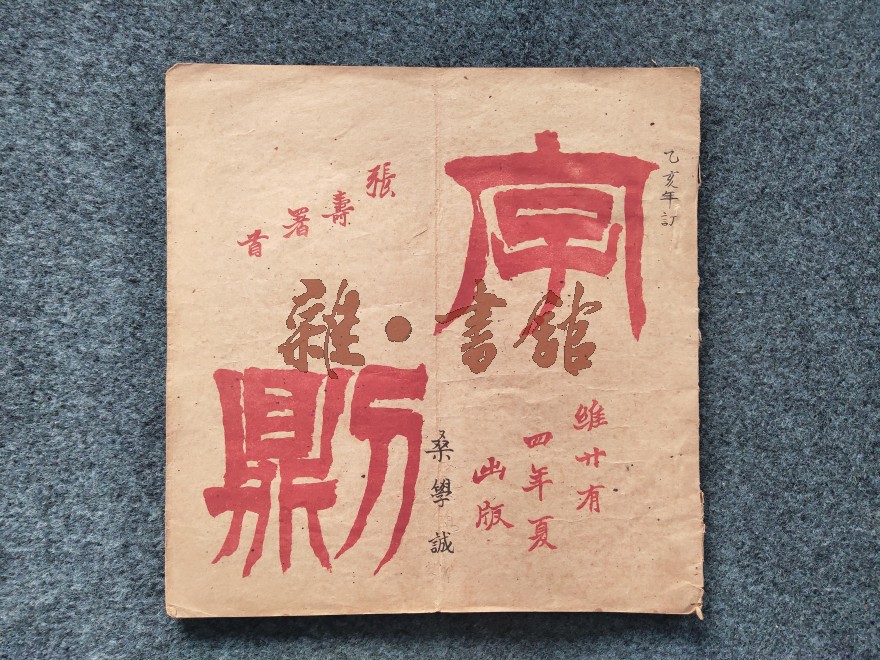 乙亥年訂
維廿有
四年夏
出版
桑學誠
則
張壽署首
雜·書館